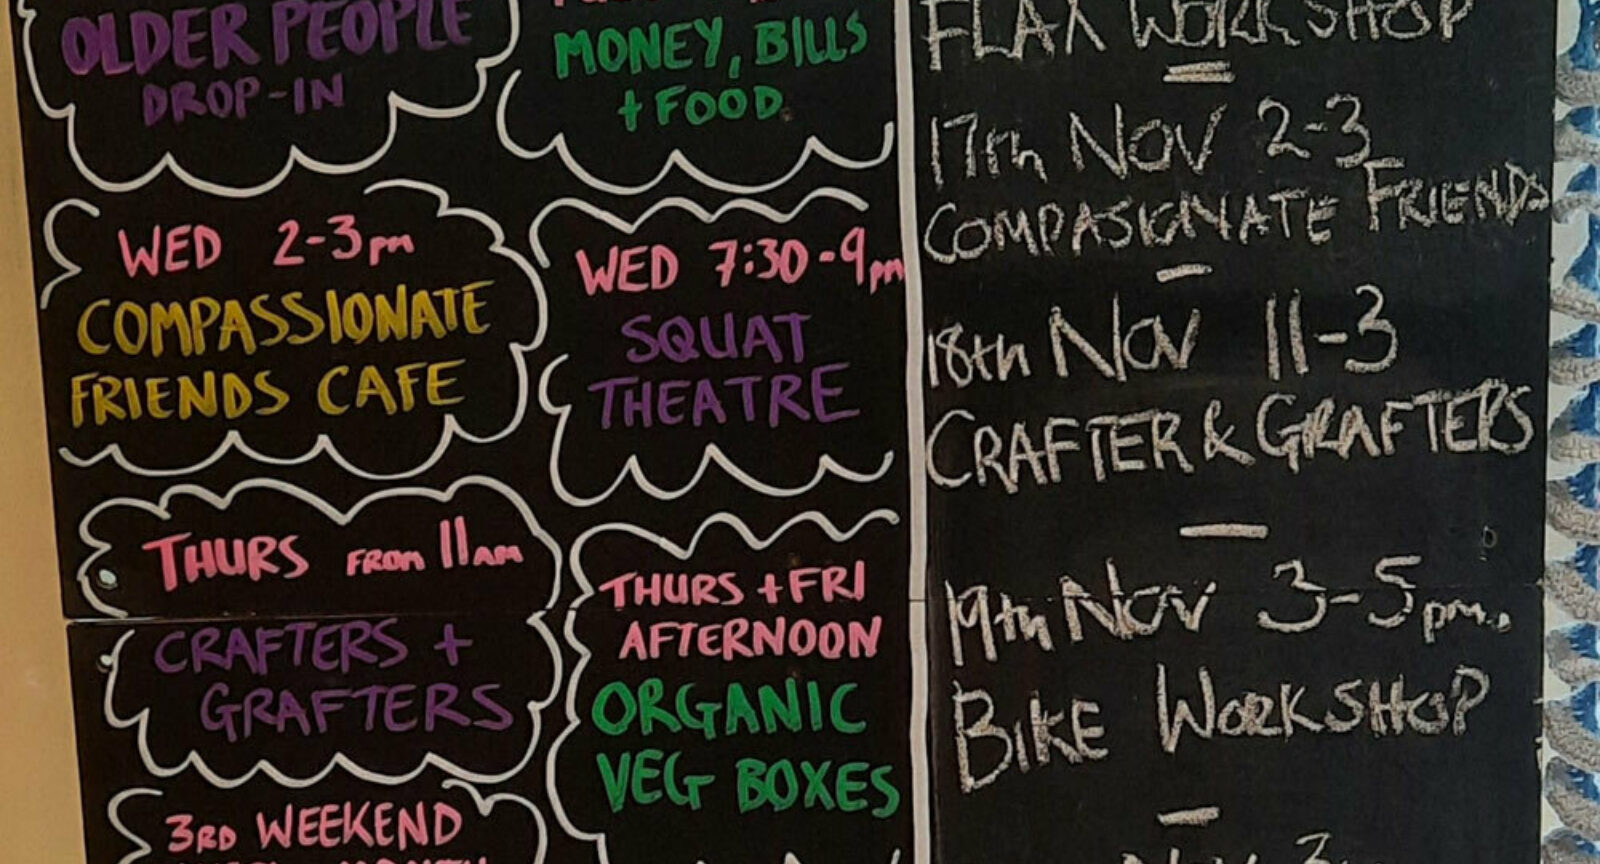 OLDER PEOPLE
DROP-IN
MONEY, BILLS
+ FOOD
WED 2-3pm
COMPASSIONATE
FRIENDS CAFE
WED 7:30-9pm
SQUAT
THEATRE
THURS FROM 11AM
CRAFTERS +
GRAFTERS
THURS + FRI
AFTERNOON
ORGANIC
VEG BOXES
3RD WEEKEND
FLAX WORKSHOP
17th NOV 2-3
COMPASIONATE FRIENDS
18th NOV 11-3
CRAFTER & GRAFTERS
19th NOV 3-5pm.
BIKE WORKSHOP